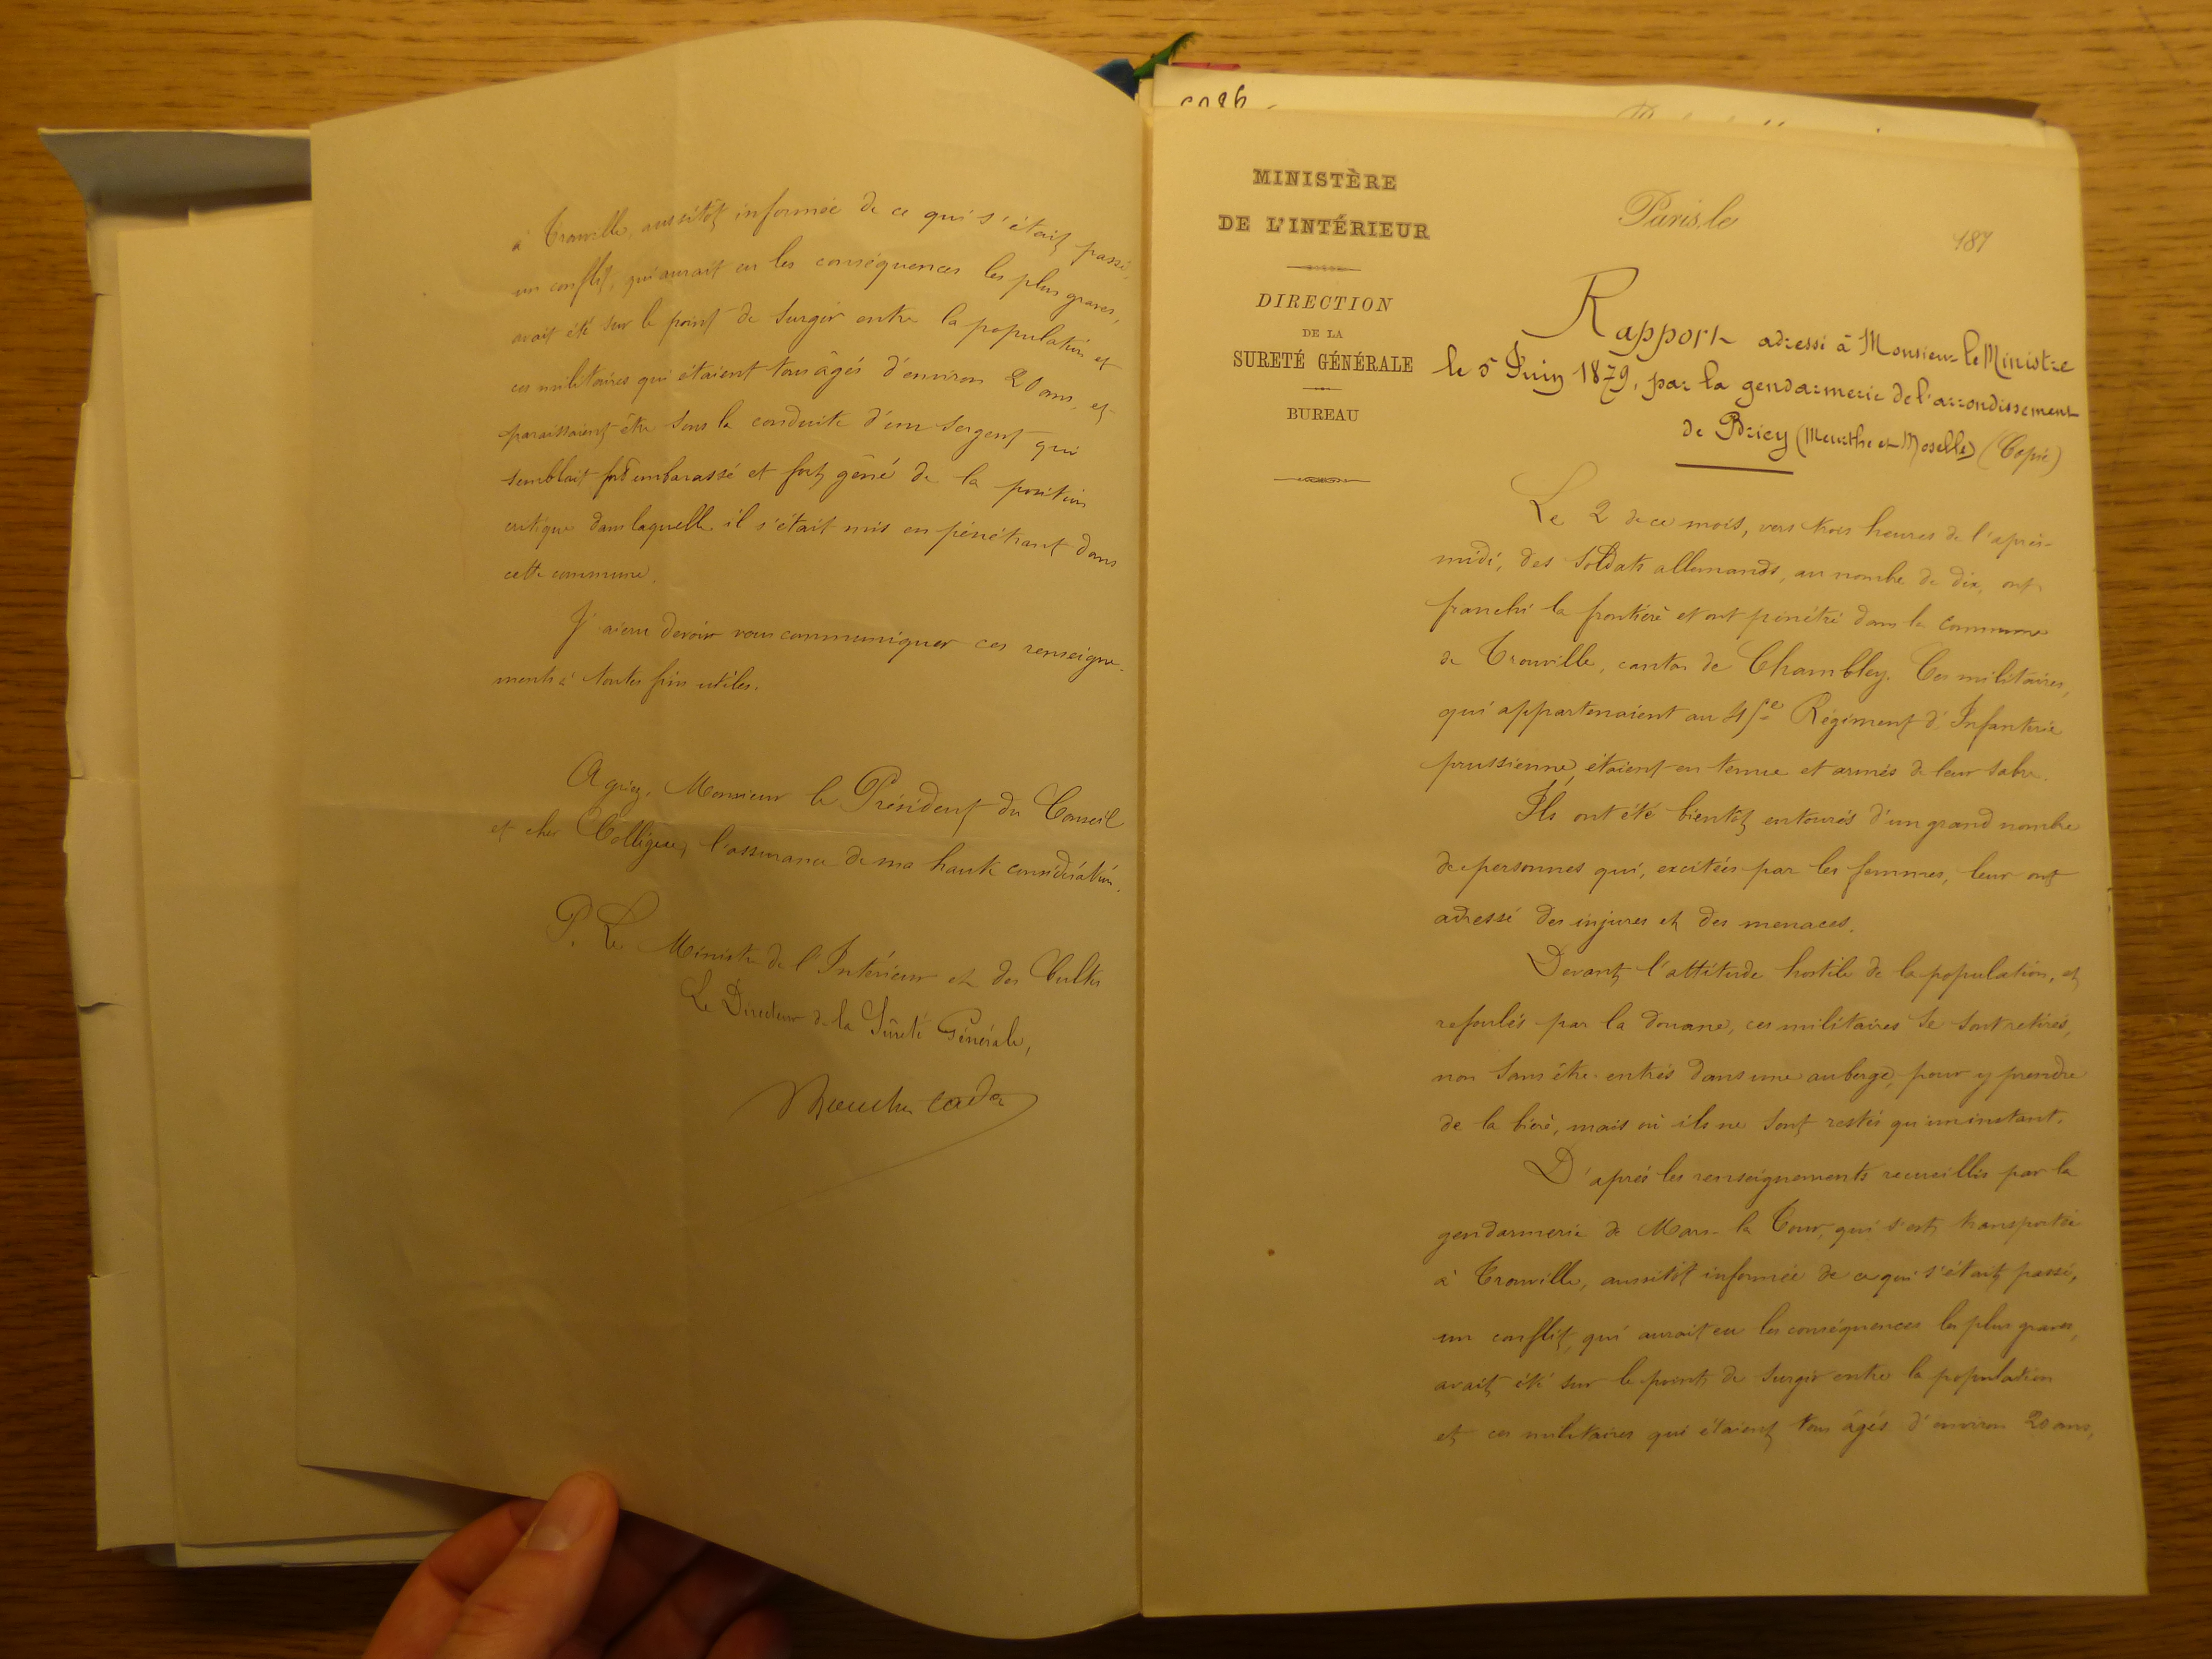 à Tronville, aussitôt informée de ce qui s'était passé,
un conflit, qui aurait eu les conséquences les plus graves,
avait été sur le point de surgir entre la population et
ces militaires qui étaient tous âgés d'environ 20 ans, et
paraissaient être sous la conduite d'un sergent qui
semblait fort embarassé et fort gêné de la position
critique dans laquelle il s'était mis en pénétrant dans
cette commune.
J'ai cru devoir vous communiquer ces renseigne-
ments à toutes fins utiles.
Agréez, Monsieur le Président du Conseil
et cher Collègue, l'assurance de ma haute considération.
P. Le Ministre de l'Intérieur et des Cultes
Le Directeur de la Sûreté Générale,
MINISTÈRE
DE L'INTÉRIEUR
DIRECTION
DE LA
SURETÉ GÉNÉRALE
BUREAU
Paris, le
187
Rapport adressé à Monsieur le Ministre
le 5 Juin 1879, par la gendarmerie de l'arrondissement
de Briey (Meurthe et Moselle) (Copie)
Le 2 de ce mois, vers trois heures de l'après-
midi, des soldats allemands, au nombre de dix, ont
franchi la frontière et ont pénétré dans la commune
de Tronville, canton de Chambley. Ces militaires,
qui appartenaient au 45e Régiment d'Infanterie
prussienne, étaient en tenue et armés de leur sabre.
Ils ont été bientôt entourés d'un grand nombre
de personnes qui, excitées par les femmes, leur ont
adressé des injures et des menaces.
Devant l'attitude hostile de la population, et
refoulés par la douane, ces militaires se sont retirés,
non sans être entrés dans une auberge, pour y prendre
de la bière, mais où ils ne sont restés qu'un instant.
D'après les renseignements recueillis par la
gendarmerie de Mars-la Tour, qui s'est transportée
à Tronville, aussitôt informée de ce qui s'était passé,
un conflit, qui aurait eu les conséquences les plus graves,
avait été sur le point de surgir entre la population
et ces militaires qui étaient tous âgés d'environ 20 ans,